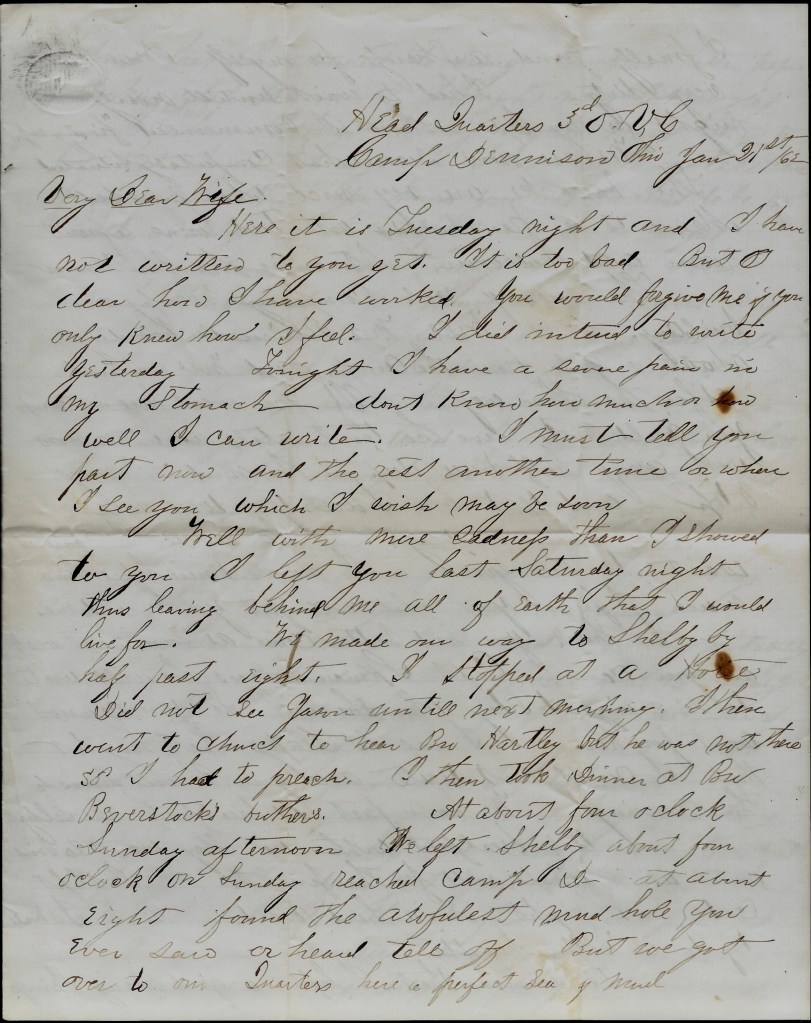 Head Quarters 3d O.V.C
Camp Dennison Ohio Jan 21st/62
Very Dear Wife.
Here it is Tuesday night and I have
not written to you yet. It is too bad But O
dear how I have worked. You would forgive me if you
only knew how I feel. I did intend to write
yesterday Tonight I have a severe pain in
my Stomach dont know how much or how
well I can write. I must tell you
part now and the rest another time or when
I see you which I wish may be soon
Well with more sadness than I showed
to you I left you last Saturday night
thus leaving behind me all of Earth that I would
live for. We made our way to Shelby by
half past eight. I stopped at a Hotel
Did not see Jason untill next morning. I then
went to church to hear Bro Hartley but he was not there
so I had to preach. I then took Dinner at Bro
Beverstocks brothers. At about four oclock
Sunday afternoon We left Shelby about four
oclock on Sunday reached Camp D at about
Eight found the awfulest mud hole you
Ever saw or heard tell off But we got
over to our Quarters here a perfect Sea of mud